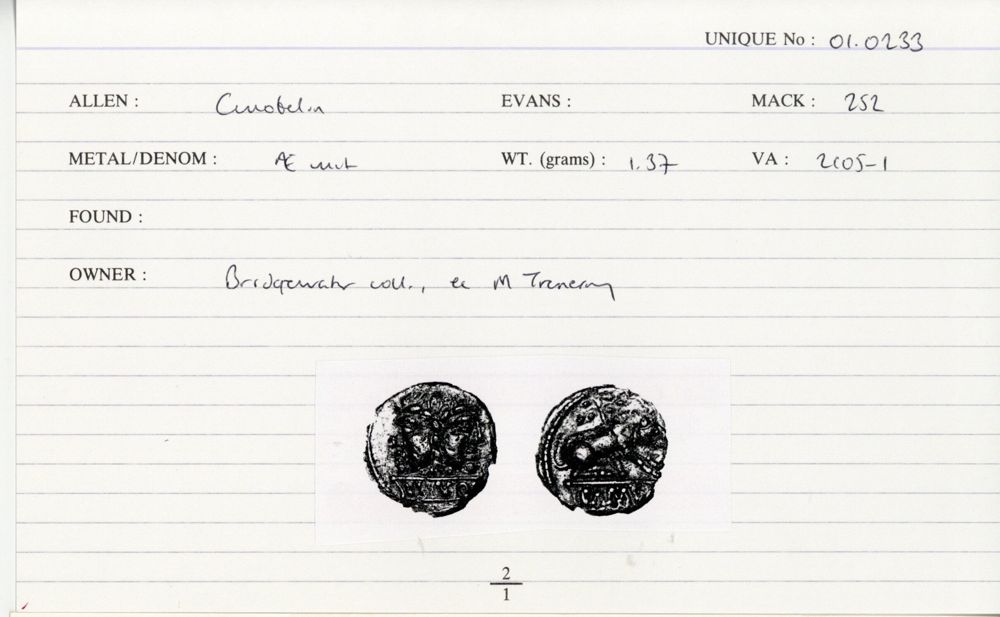 UNIQUE No : 01.0233
ALLEN : Cunobelin EVANS : MACK : 252
METAL/DENOM : Æ unit WT. (grams) : 1.37 VA : 2105-1
FOUND :
OWNER : Bridgewater coll., ex M Trenerry
2
1